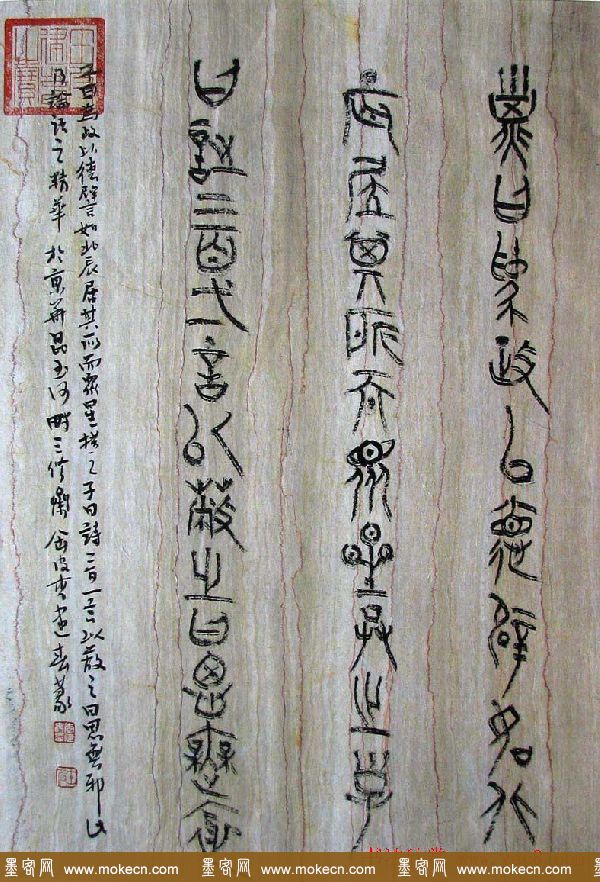 子曰為政以德辟如北
辰居其所而眾星共之子
曰詩三百弌言以蔽之曰思無邪
子曰為政以德譬如北辰居其所而眾星拱之子曰詩三百一言以蔽之曰思無邪此
乃論語之精華 於京華昆玉河畔三竹
墨客网 www.mokecn.com 墨客网 www.mokecn.com 墨客网 www.mokecn.com